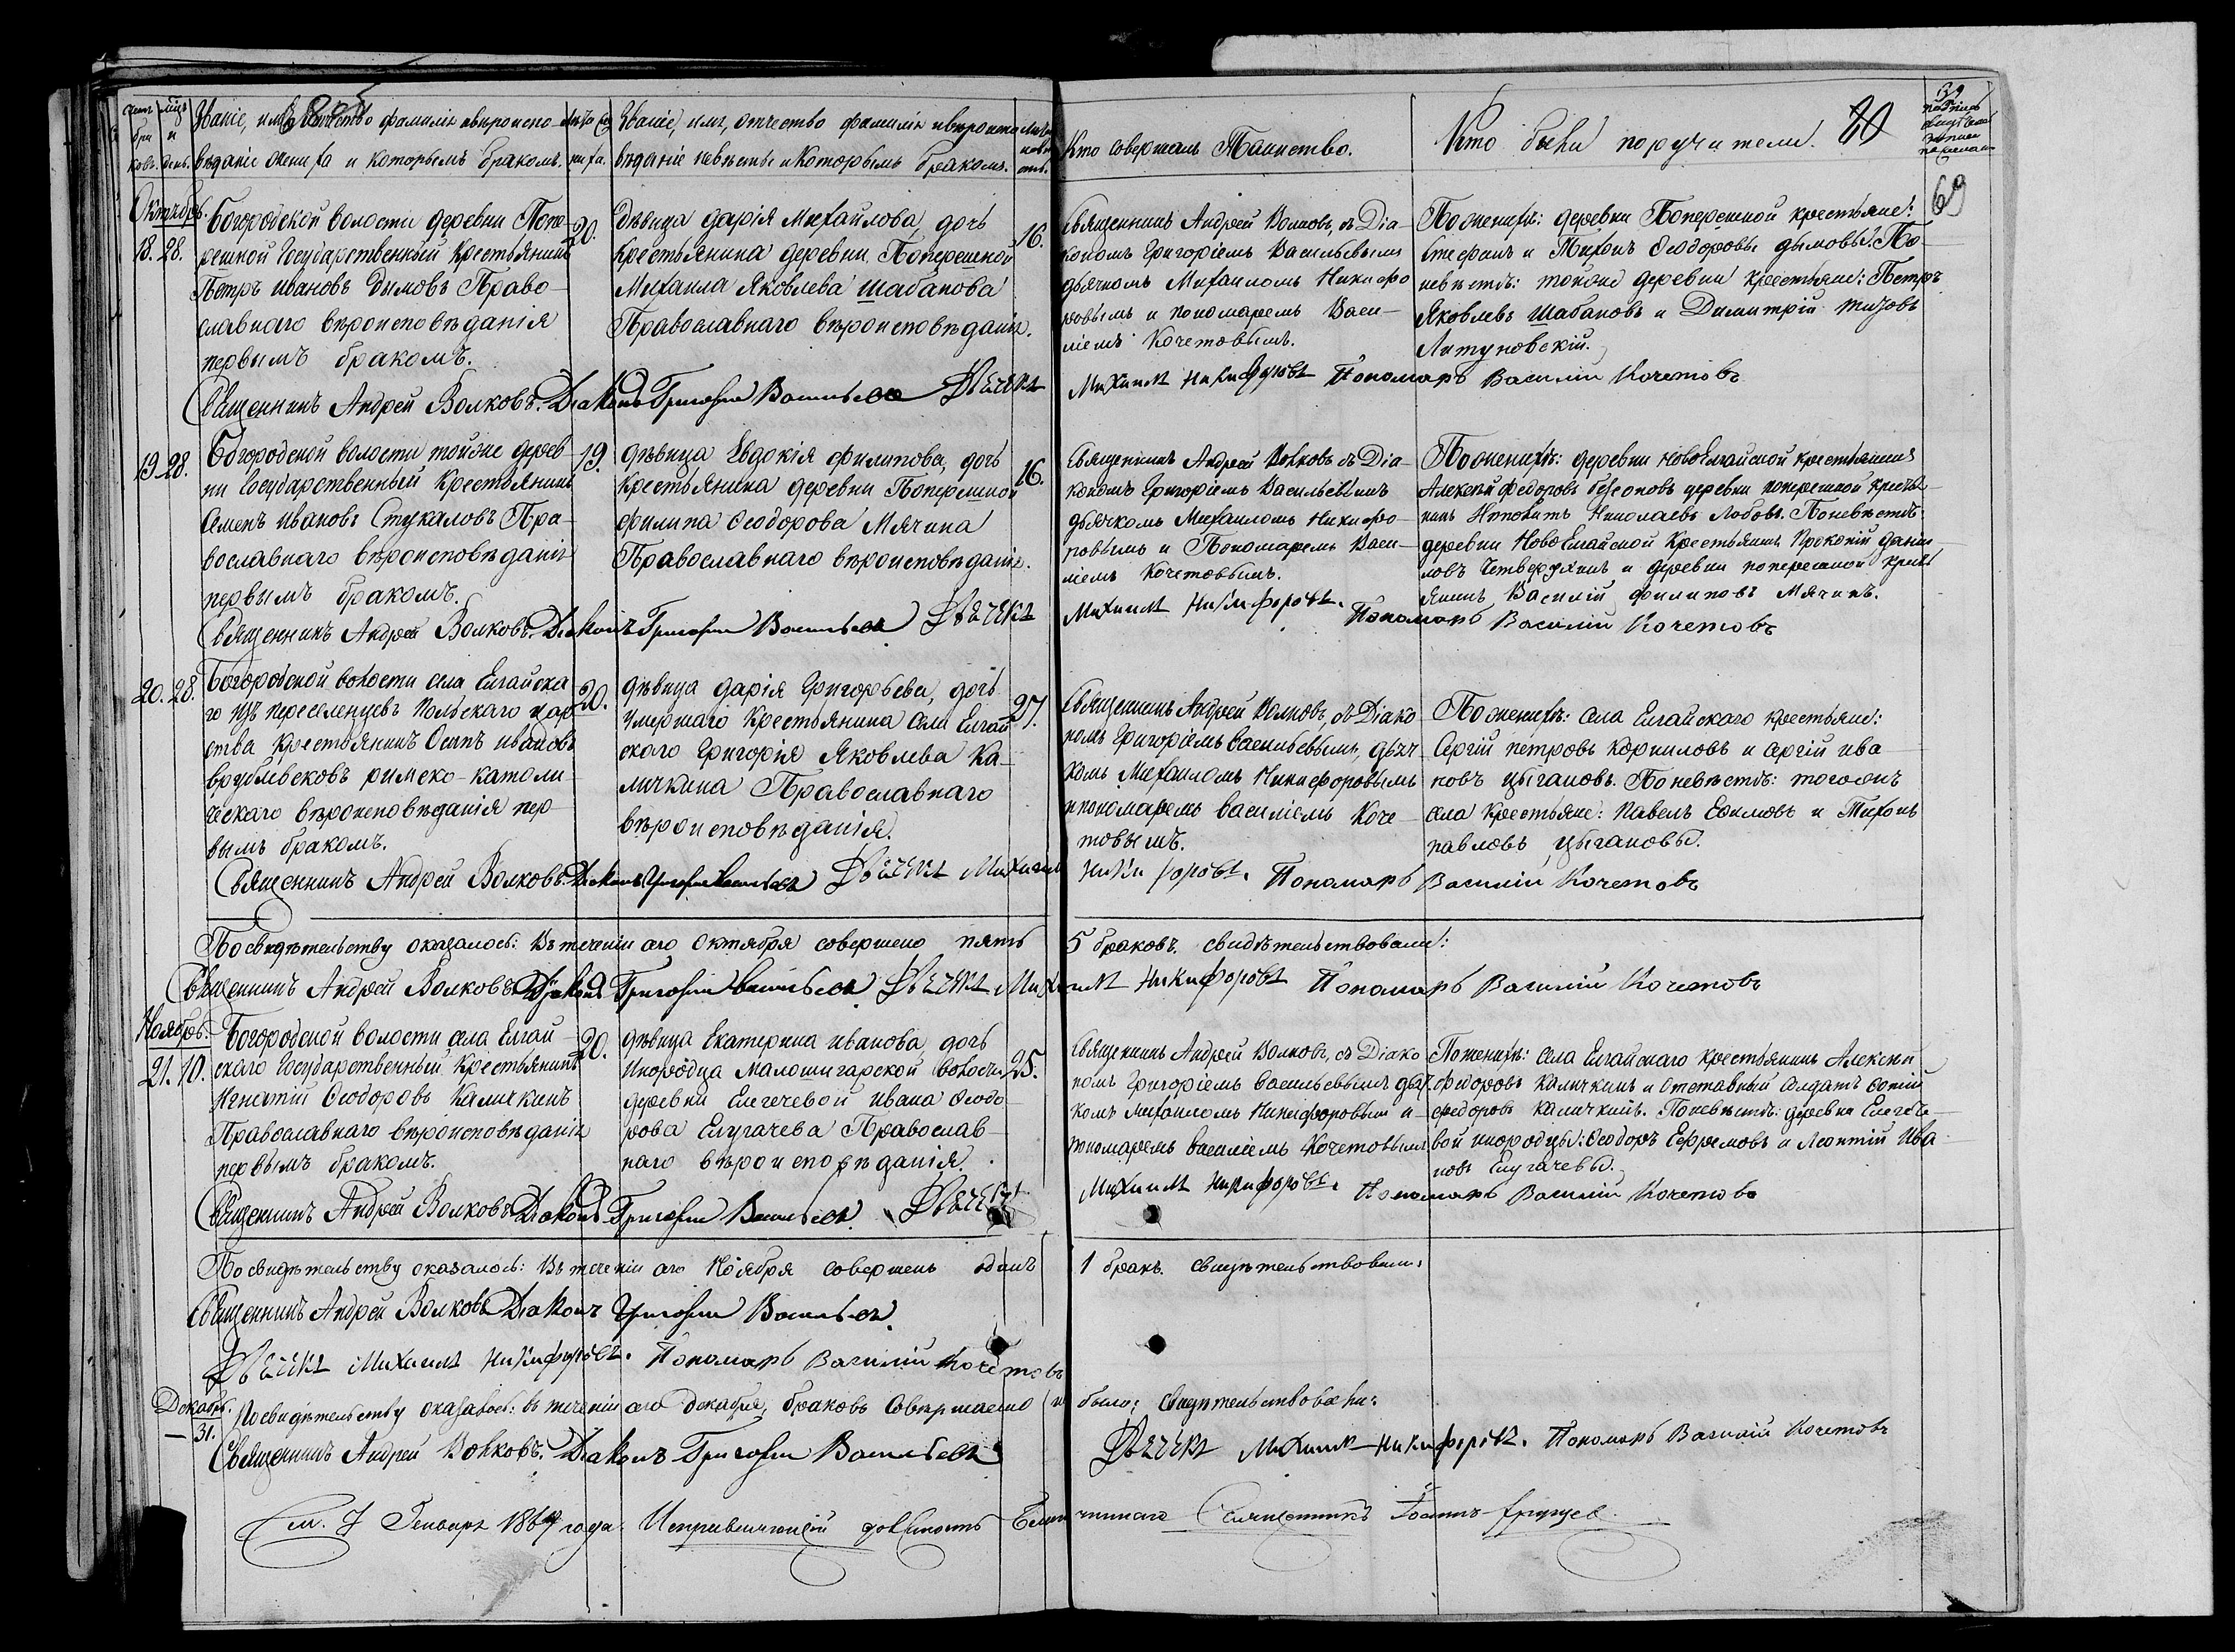 Счетъ браковъ. Мѣсяцъ и день.
Званіе, имя, отчество фамилія и вѣроиспо-
вѣданіе жениха и которымъ бракомъ.
Лѣта жениха.
Званіе, имя, отчество фамилія и вѣроиспо
вѣданіе невѣсты и которымъ бракомъ.
Кто совершалъ Таинство.
Кто были поручители.
69
Октябрь.
18. 28.
Богородской волости деревни Попе-
решной Государственный Крестьянинъ
Петръ Ивановъ Дымовъ Право-
славнаго вѣроисповѣданія
первымъ бракомъ.
20.
Дѣвица Дарія Михайлова, дочь
Крестьянина деревни Поперешной
Михаила Яковлева Шабанова
Православнаго вѣроисповѣданія.
16.
Священникъ Андрей Волковъ, съ Діа-
кономъ Григоріемъ Васильевымъ
дьячкомъ Михаиломъ Никифо
ровымъ и пономаремъ Васи-
ліемъ Кочетовымъ.
По женихѣ: деревни Поперешной крестьяне:
Стефанъ и Тихонъ Ѳеодоровы Дымовы. По
невѣстѣ: тойже деревни крестьяне: Петръ
Яковлевъ Шабановъ и Димитрій Титовъ
Священникъ Андрей Волковъ. Діаконъ Григорій Васильевъ Дьячекъ Михаилъ Никифоровъ Пономарь Василій Кочетовъ
19. 28.
Богородской волости тойже дерев
ни Государственный Крестьянинъ
Семенъ Ивановъ Стукаловъ Пра-
вославнаго вѣроисповѣданія
первымъ бракомъ.
19.
Дѣвица Евдокія Филипова, дочь
Крестьянина деревни Поперешной
Филипа Ѳеодорова Мячина
Православнаго вѣроисповѣданія.
16.
Священникъ Андрей Волковъ съ Діа-
кономъ Григоріемъ Васильевымъ
дьячкомъ Михаиломъ Никифо-
ровымъ и Пономаремъ Васи-
ліемъ Кочетовымъ.
По женихѣ: деревни НовоЕлгайской крестьянинъ
Алексѣй Федоровъ деревни поперешной крестья-
нинъ Николаевъ Лобовъ. По невѣстѣ:
деревни НовоЕлгайской Крестьянинъ Прокопій Дани
ловъ Четвергинъ и деревни поперешной крестья
янинъ Василій Филиповъ Мячинъ.
Священникъ Андрей Волковъ. Діаконъ Григорій Васильевъ Дьячекъ Михаилъ Никифоровъ. Пономарь Василій Кочетовъ
20. 28.
Богородской волости села Елгайска
го изъ переселенцевъ Польскаго цар
ства Крестьянинъ Осипъ Ивановъ
римско-католи
ческаго вѣроисповѣданія пер
вымъ бракомъ.
20.
Дѣвица Дарія Григорьева, дочь
Умершаго Крестьянина села Елгай
скаго Григорія Яковлева Ка-
личкина Православнаго
вѣроисповѣданія.
27.
Священникъ Андрей Волковъ, съ Діако
номъ Григоріемъ Васильевымъ, дьяч
комъ Михаиломъ Никифоровымъ
и пономаремъ Василіемъ Коче-
товымъ.
По женихѣ: села Елгайскаго крестьяне:
Сергій Петровъ Корниловъ и Сергій Ива
новъ Цыгановъ. По невѣстѣ: тогоже
села Крестьяне: Павелъ Ефимовъ и Тихонъ
Павловъ Цыгановы.
Священникъ Андрей Волковъ. Діаконъ Григорій Васильевъ Дьячекъ Михаилъ Никифоровъ. Пономарь Василій Кочетовъ
По свидѣтельству оказалось: Въ теченіи сего Октября совершено пять 5 браковъ. свидѣтельствовали:
Священникъ Андрей Волковъ Діаконъ Григорій Васильевъ Дьячекъ Михаилъ Никифоровъ Пономарь Василій Кочетовъ
Ноябрь.
21. 10.
Богородской волости села Елгай-
скаго Государственный Крестьянинъ
Игнатій Ѳеодоровъ Каличкинъ
Православнаго вѣроисповѣданія
первымъ бракомъ.
20.
Дѣвица Екатерина Иванова дочь
Инородца Малошигарской волости
деревни Елегечевой Ивана Ѳеодо
рова Елугачева Православ-
наго вѣроисповѣданія.
25.
Священникъ Андрей Волковъ, съ Діако
номъ Григоріемъ Васильевымъ дьяч
комъ Михаиломъ Никифоровымъ и
пономаремъ Василіемъ Кочетовымъ
По женихѣ: села Елгайскаго крестьянинъ Алексѣй
Федоровъ Каличкинъ и Отставный Солдатъ
Федоровъ Каличкинъ. По невѣстѣ: деревни Елегече-
вой инородцы: Ѳеодоръ Ефремовъ и Леонтій Ива
новъ Елугачевы.
Священникъ Андрей Волковъ Діаконъ Григорій Васильевъ. Дьячекъ Михаилъ Никифоровъ. Пономарь Василій Кочетовъ
По свидѣтельству оказалось: Въ теченіи сего Ноября совершенъ одинъ 1 бракъ. свидѣтельствовали:
Священникъ Андрей Волковъ Діаконъ Григорій Васильевъ.
Дьячекъ Михаилъ Никифоровъ. Пономарь Василій Кочетовъ
Декабрь.
31.
По свидѣтельству оказалось: въ теченіи сего декабря, браковъ совершаемо не было; свидѣтельствовали:
Священникъ Андрей Волковъ. Діаконъ Григорій Васильевъ Дьячекъ Михаилъ Никифоровъ. Пономарь Василій Кочетовъ
7 Генваря 1864 года. Исправляющій должность Благочиннаго Священникъ Іоаннъ